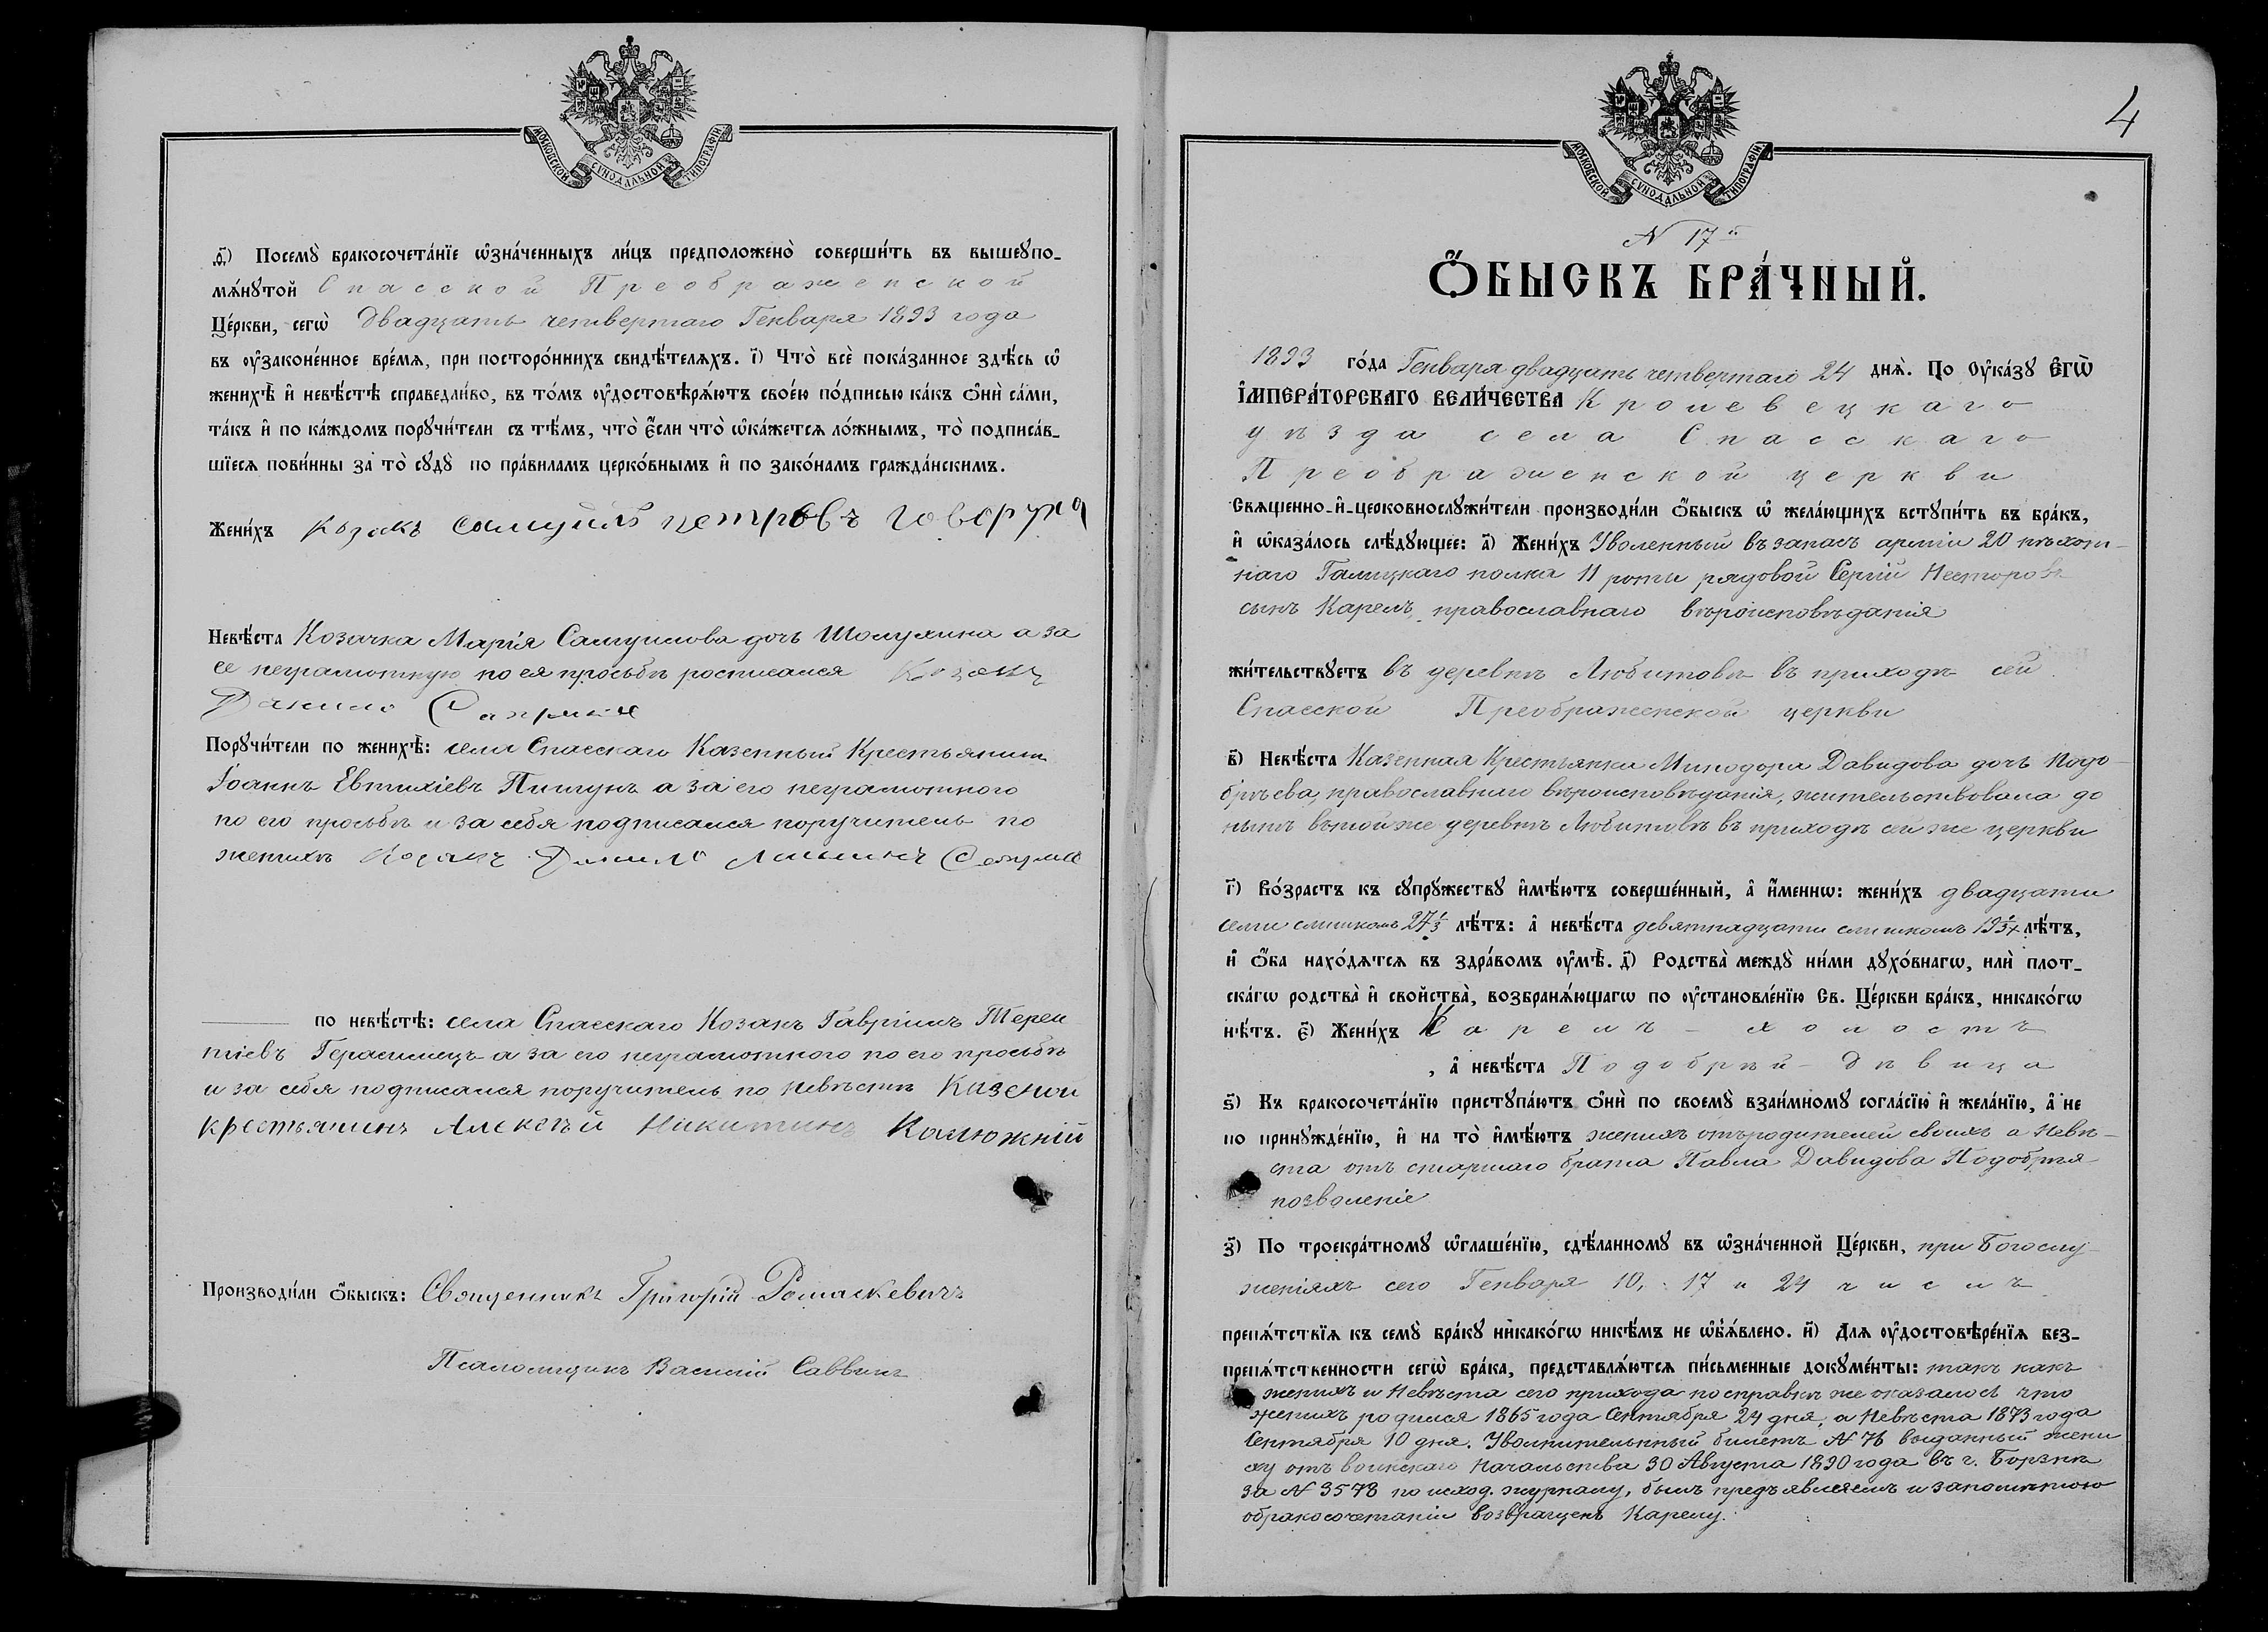 МОСКОВСКОЙ СѴНОДАЛЬНОЙ ТИПОГРАФІИ
ѳ҃) Посемꙋ̀ бракосочета́нїе ѡ҆зна́ченныхъ ли́цъ предположено̀ соверши́ть въ вышеꙋпо-
мѧ́нꙋтой Спасской Преображенской
Це́ркви, сегѡ̀ двадцать четвертаго Генваря 1893 года
въ ѹ҆законе́нное вре́мѧ, при посторо́ннихъ свидѣ́телѧхъ. і҃) Что̀ всѐ пока́занное здѣ́сь ѡ҆
женихѣ̀ и҆ невѣ́стѣ справедли́во, въ то́мъ ѹ҆достовѣрѧ́ютъ свое́ю по́дписью ка́къ ѻ҆нѝ са́ми,
та́къ и҆ по ка́ждомъ порꙋчи́тели съ тѣ́мъ, что̀ є҆́сли что̀ ѡ҆ка́жетсѧ ло́жнымъ, то̀ подписа́в-
шїесѧ пови́нны за то̀ сꙋдꙋ̀ по пра́виламъ церко́внымъ и҆ по зако́намъ гражда́нскимъ.
Жени́хъ Козакъ Самуилъ Петровъ Говоруха
Невѣ́ста Козачка Марія Самуилова дочь Шолухина а за
ее неграмотную по ея просьбѣ росписался Козакъ
Данило
Порꙋчи́тели по женихѣ̀: села Спасскаго Казенный Крестьянин
Іоаннъ Евтихіевъ Пишунъ а за его неграмотного
по его просьбѣ и за себя подписался поручитель по
женихѣ Козакъ Данило
по невѣ́стѣ: села Спасскаго Козакъ Гавріилъ Терен
тіевъ Герасимецъ а за его неграмотного по его просьбѣ
и за себя подписался поручитель по невѣстѣ Казеной
крестьянинъ Алексѣй Никитинъ Калюжній
Производи́ли ѻ҆́быскъ: Священникъ Григорій Ромаскевичъ
Псаломщикъ Василій Саввинъ
4
МОСКОВСКОЙ СѴНОДАЛЬНОЙ ТИПОГРАФІИ
N 17й
Ѻ҆́БЫСКЪ БРА́ЧНЫЙ.
1893 го́да Генваря двадцать четвертаго 24 днѧ̀. По Ѹ҆ка́зꙋ Є҆гѡ̀
І҆МПЕРА́ТОРСКАГО ВЕЛИ́ЧЕСТВА Кролевецкаго
уѣзда села Спасскаго
Преображенской церкви
Свѧщенно-и҆-церковнослꙋжи́тели производи́ли ѻ҆́быскъ ѡ҆ жела́ющихъ встꙋпи́ть въ бра́къ,
и҆ ѡ҆каза́лось слѣ́дꙋющее: а҃) Жени́хъ Уволенный въ запасъ арміи 20 пѣхот-
наго Галицкаго полка 11 роты рядовой Сергій Несторовъ
сынъ Карель, православнаго вѣроисповѣданія
жи́тельствꙋетъ въ деревнѣ Любитовѣ въ приходѣ сей
Спасской Преображенской церкви
в҃) Невѣ́ста Казенная Крестьянка Минодора Давидова дочь Подо-
брѣева, православнаго вѣроисповѣданія, жительствовала до
нынѣ въ той же деревнѣ Любитовѣ въ приходѣ сей же церкви
г҃) Во́зрастъ къ сꙋпрꙋ́жествꙋ и҆мѣ́ютъ соверше́нный, а҆ и҆́меннѡ: жени́хъ двадцати
семи слишкомъ 27⅓ лѣ́тъ: а҆ невѣ́ста девятнадцати слишкомъ 19⅓ лѣ́тъ,
и҆ ѻ҆́ба нахо́дѧтсѧ въ здра́вомъ ѹ҆мѣ̀. д҃) Родства̀ междꙋ̀ ни́ми дꙋхо́внагѡ, илѝ плот-
ска́гѡ родства̀ и҆ свойства̀, возбранѧ́ющагѡ по ѹ҆становле́нїю Св. Це́ркви бра́къ, никако́гѡ
нѣ́тъ. є҃) Жени́хъ Карель - холостъ
, а҆ невѣ́ста Подобрѣй - дѣвица
ѕ҃) Къ бракосочета́нїю пристꙋпа́ютъ ѻ҆нѝ по своемꙋ̀ взаи́мномꙋ согла́сїю и҆ жела́нїю, а҆ не
по принꙋжде́нїю, и҆ на то̀ и҆мѣ́ютъ женихъ отъ родителей своихъ а невѣ-
ста отъ старшаго брата Павла Давидова Подобрѣя
позволеніе
з҃) По троекра́тномꙋ ѡ҆глаше́нїю, сдѣ́ланномꙋ въ ѡ҆зна́ченной Це́ркви, при Богослу-
женіяхъ сего Генваря 10, 17 и 24 числъ
препѧ́тствїѧ къ семꙋ̀ бра́кꙋ никако́гѡ никѣ́мъ не ѡ҆б̾ѧ́влено. и҃) Длѧ ѹ҆достовѣре́нїѧ без-
препѧ́тственности сегѡ̀ бра́ка, представлѧ́ютсѧ пи́сьменные докꙋме́нты: такъ какъ
женихъ и невѣста сего прихода по справкѣ же оказалось что
женихъ родился 1865 года Сентября 24 дня, а невѣста 1873 года
Сентября 10 дня. Уволнительнный билетъ N 76 выданный жени
ху отъ воинскаго Начальства 30 Августа 1890 года въ г. Борзнѣ
за N 3578 по исход. журналу, былъ предъявляемъ и
обракосочетаніи возвращенъ Карелу.